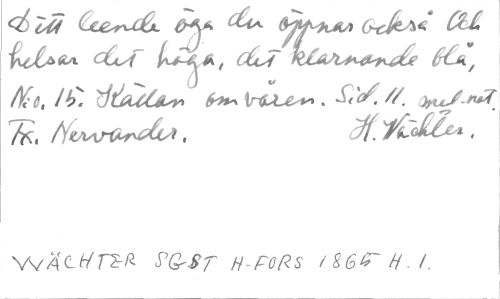 Ditt leende öga du öppnar också Och
helsar det höga, det klarnande blå,
No. 15. Källan om våren. Sid. 11. mel.-not.
Tx. Nervander. H. Wächter.
WÄCHTER SGST H-FORS 1865 H. 1.